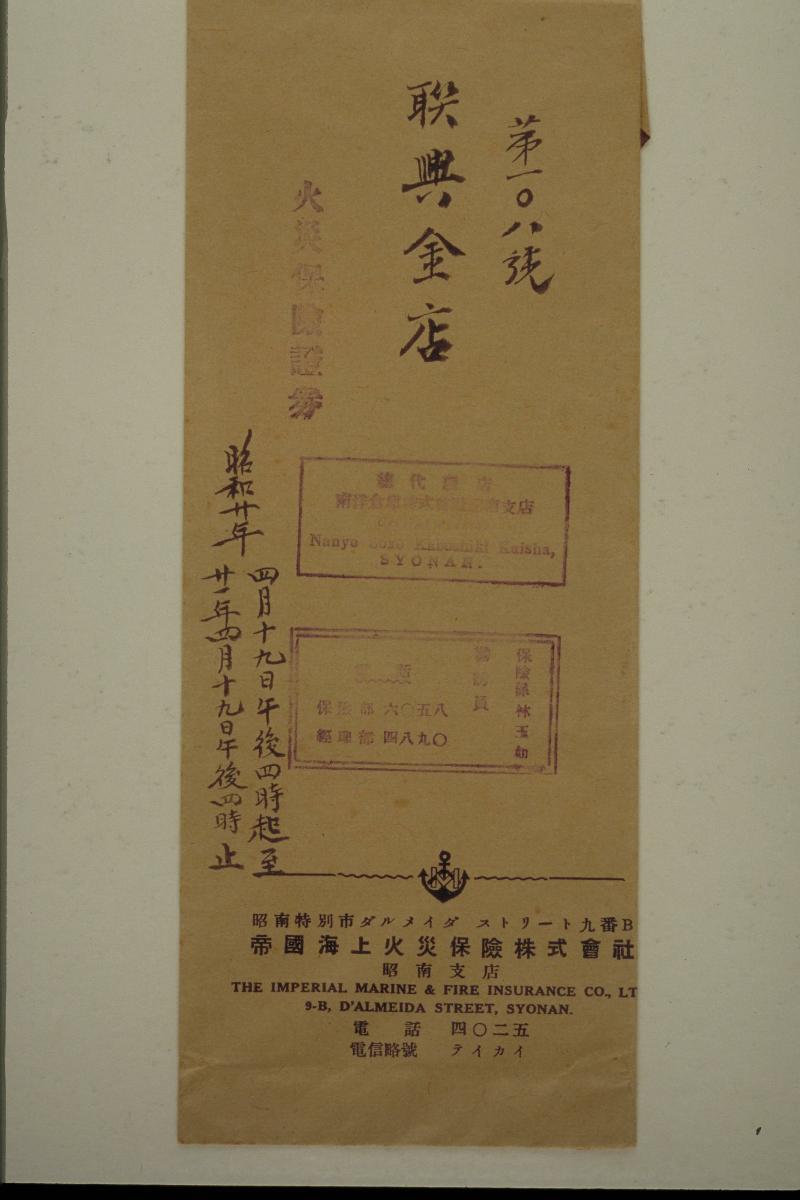 第一〇八號
聯興金店
火災保險證券
昭和廿年
四月十九日午後四時起至
廿一年四月十九日午後四時止
總代理店
Nanyo Soko Kabushiki Kaisha,
SYONAN.
保險係 林玉
員
電話
保險部 六〇五八
經理部 四八九〇
昭南特別市ダルメイダ ストリート九番B
帝國海上火災保險株式會社
昭南支店
THE IMPERIAL MARINE & FIRE INSURANCE CO., LT
9-B, D'ALMEIDA STREET, SYONAN.
電話 四〇二五
電信略號 テイカイ